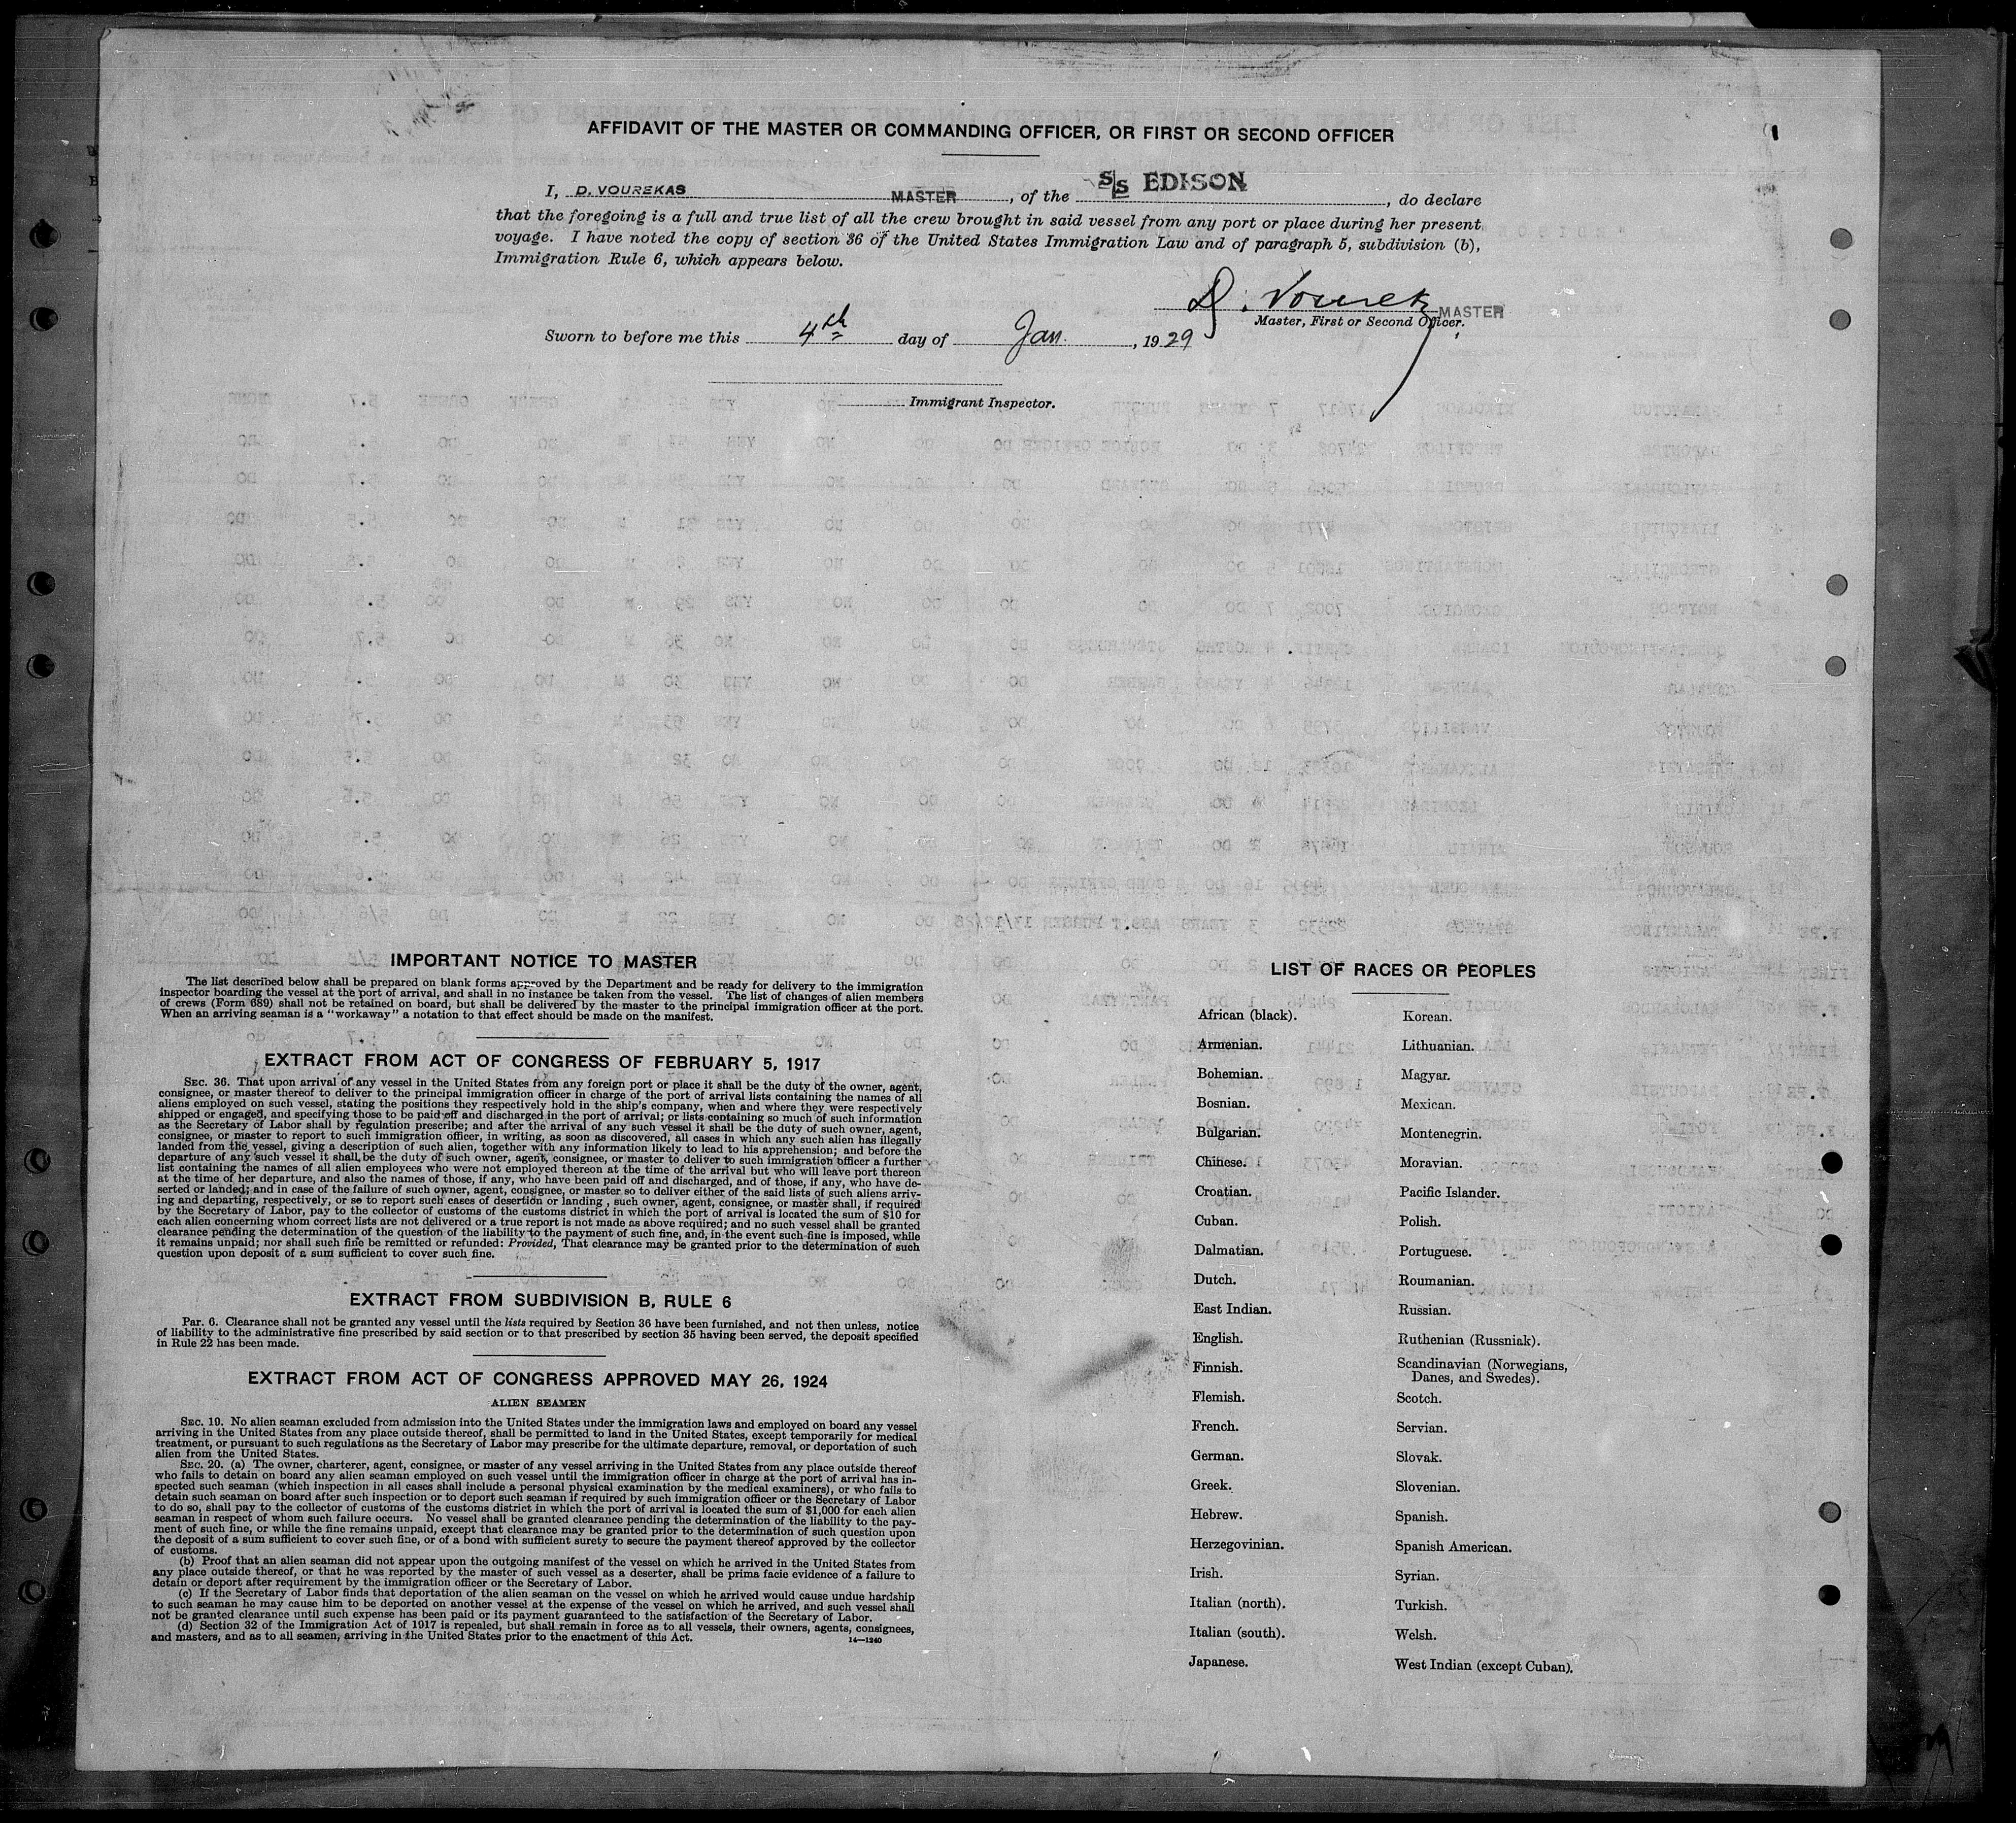 AFFIDAVIT OF THE MASTER OR COMMANDING OFFICER, OR FIRST OR SECOND OFFICER
I, D. VOUREKAS MASTER, of the S/S EDISON, do declare
that the foregoing is a full and true list of all the crew brought in said vessel from any port or place during her present
voyage. I have noted the copy of section 36 of the United States Immigration Law and of paragraph 5, subdivision (b),
Immigration Rule 6, which appears below.
D. Vourekas MASTER
Master, First or Second Officer.
Sworn to before me this 4th day of Jan., 1929
Immigrant Inspector.
IMPORTANT NOTICE TO MASTER
The list described below shall be prepared on blank forms approved by the Department and be ready for delivery to the immigration
inspector boarding the vessel at the port of arrival, and shall in no instance be taken from the vessel. The list of changes of alien members
of crews (Form 689) shall not be retained on board, but shall be delivered by the master to the principal immigration officer at the port.
When an arriving seaman is a "workaway" a notation to that effect should be made on the manifest.
EXTRACT FROM ACT OF CONGRESS OF FEBRUARY 5, 1917
SEC. 36. That upon arrival of any vessel in the United States from any foreign port or place it shall be the duty of the owner, agent,
consignee, or master thereof to deliver to the principal immigration officer in charge of the port of arrival lists containing the names of all
aliens employed on such vessel, stating the positions they respectively hold in the ship's company, when and where they were respectively
shipped or engaged, and specifying those to be paid off and discharged in the port of arrival; or lists containing so much of such information
as the Secretary of Labor shall by regulation prescribe; and after the arrival of any such vessel it shall be the duty of such owner, agent,
consignee, or master to report to such immigration officer, in writing, as soon as discovered, all cases in which any such alien has illegally
landed from the vessel, giving a description of such alien, together with any information likely to lead to his apprehension; and before the
departure of any such vessel it shall be the duty of such owner, agent, consignee, or master to deliver to such immigration officer a further
list containing the names of all alien employees who were not employed thereon at the time of the arrival but who will leave port thereon
at the time of her departure, and also the names of those, if any, who have been paid off and discharged, and of those, if any, who have de-
serted or landed; and in case of the failure of such owner, agent, consignee, or master so to deliver either of the said lists of such aliens arriv-
ing and departing, respectively, or so to report such cases of desertion or landing, such owner, agent, consignee, or master shall, if required
by the Secretary of Labor, pay to the collector of customs of the customs district in which the port of arrival is located the sum of $10 for
each alien concerning whom correct lists are not delivered or a true report is not made as above required; and no such vessel shall be granted
clearance pending the determination of the question of the liability to the payment of such fine, and, in the event such fine is imposed, while
it remains unpaid; nor shall such fine be remitted or refunded: Provided, That clearance may be granted prior to the determination of such
question upon deposit of a sum sufficient to cover such fine.
EXTRACT FROM SUBDIVISION B, RULE 6
Par. 6. Clearance shall not be granted any vessel until the lists required by Section 36 have been furnished, and not then unless, notice
of liability to the administrative fine prescribed by said section or to that prescribed by section 35 having been served, the deposit specified
in Rule 22 has been made.
EXTRACT FROM ACT OF CONGRESS APPROVED MAY 26, 1924
ALIEN SEAMEN
SEC. 19. No alien seaman excluded from admission into the United States under the immigration laws and employed on board any vessel
arriving in the United States from any place outside thereof, shall be permitted to land in the United States, except temporarily for medical
treatment, or pursuant to such regulations as the Secretary of Labor may prescribe for the ultimate departure, removal, or deportation of such
alien from the United States.
SEC. 20. (a) The owner, charterer, agent, consignee, or master of any vessel arriving in the United States from any place outside thereof
who fails to detain on board any alien seaman employed on such vessel until the immigration officer in charge at the port of arrival has in-
spected such seaman (which inspection in all cases shall include a personal physical examination by the medical examiners), or who fails to
detain such seaman on board after such inspection or to deport such seaman if required by such immigration officer or the Secretary of Labor
to do so, shall pay to the collector of customs of the customs district in which the port of arrival is located the sum of $1,000 for each alien
seaman in respect of whom such failure occurs. No vessel shall be granted clearance pending the determination of the liability to the pay-
ment of such fine, or while the fine remains unpaid, except that clearance may be granted prior to the determination of such question upon
the deposit of a sum sufficient to cover such fine, or of a bond with sufficient surety to secure the payment thereof approved by the collector
of customs.
(b) Proof that an alien seaman did not appear upon the outgoing manifest of the vessel on which he arrived in the United States from
any place outside thereof, or that he was reported by the master of such vessel as a deserter, shall be prima facie evidence of a failure to
detain or deport after requirement by the immigration officer or the Secretary of Labor.
(c) If the Secretary of Labor finds that deportation of the alien seaman on the vessel on which he arrived would cause undue hardship
to such seaman he may cause him to be deported on another vessel at the expense of the vessel on which he arrived, and such vessel shall
not be granted clearance until such expense has been paid or its payment guaranteed to the satisfaction of the Secretary of Labor.
(d) Section 32 of the Immigration Act of 1917 is repealed, but shall remain in force as to all vessels, their owners, agents, consignees,
and masters, and as to all seamen, arriving in the United States prior to the enactment of this Act.
14—1240
LIST OF RACES OR PEOPLES
African (black).
Armenian.
Bohemian.
Bosnian.
Bulgarian.
Chinese.
Croatian.
Cuban.
Dalmatian.
Dutch.
East Indian.
English.
Finnish.
Flemish.
French.
German.
Greek.
Hebrew.
Herzegovinian.
Irish.
Italian (north).
Italian (south).
Japanese.
Korean.
Lithuanian.
Magyar.
Mexican.
Montenegrin.
Moravian.
Pacific Islander.
Polish.
Portuguese.
Roumanian.
Russian.
Ruthenian (Russniak).
Scandinavian (Norwegians,
Danes, and Swedes).
Scotch.
Servian.
Slovak.
Slovenian.
Spanish.
Spanish American.
Syrian.
Turkish.
Welsh.
West Indian (except Cuban).